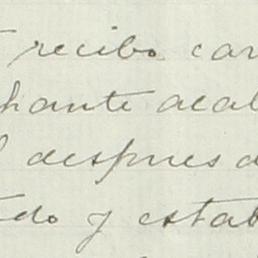 recibo car
hante acab
despues d
do y estab